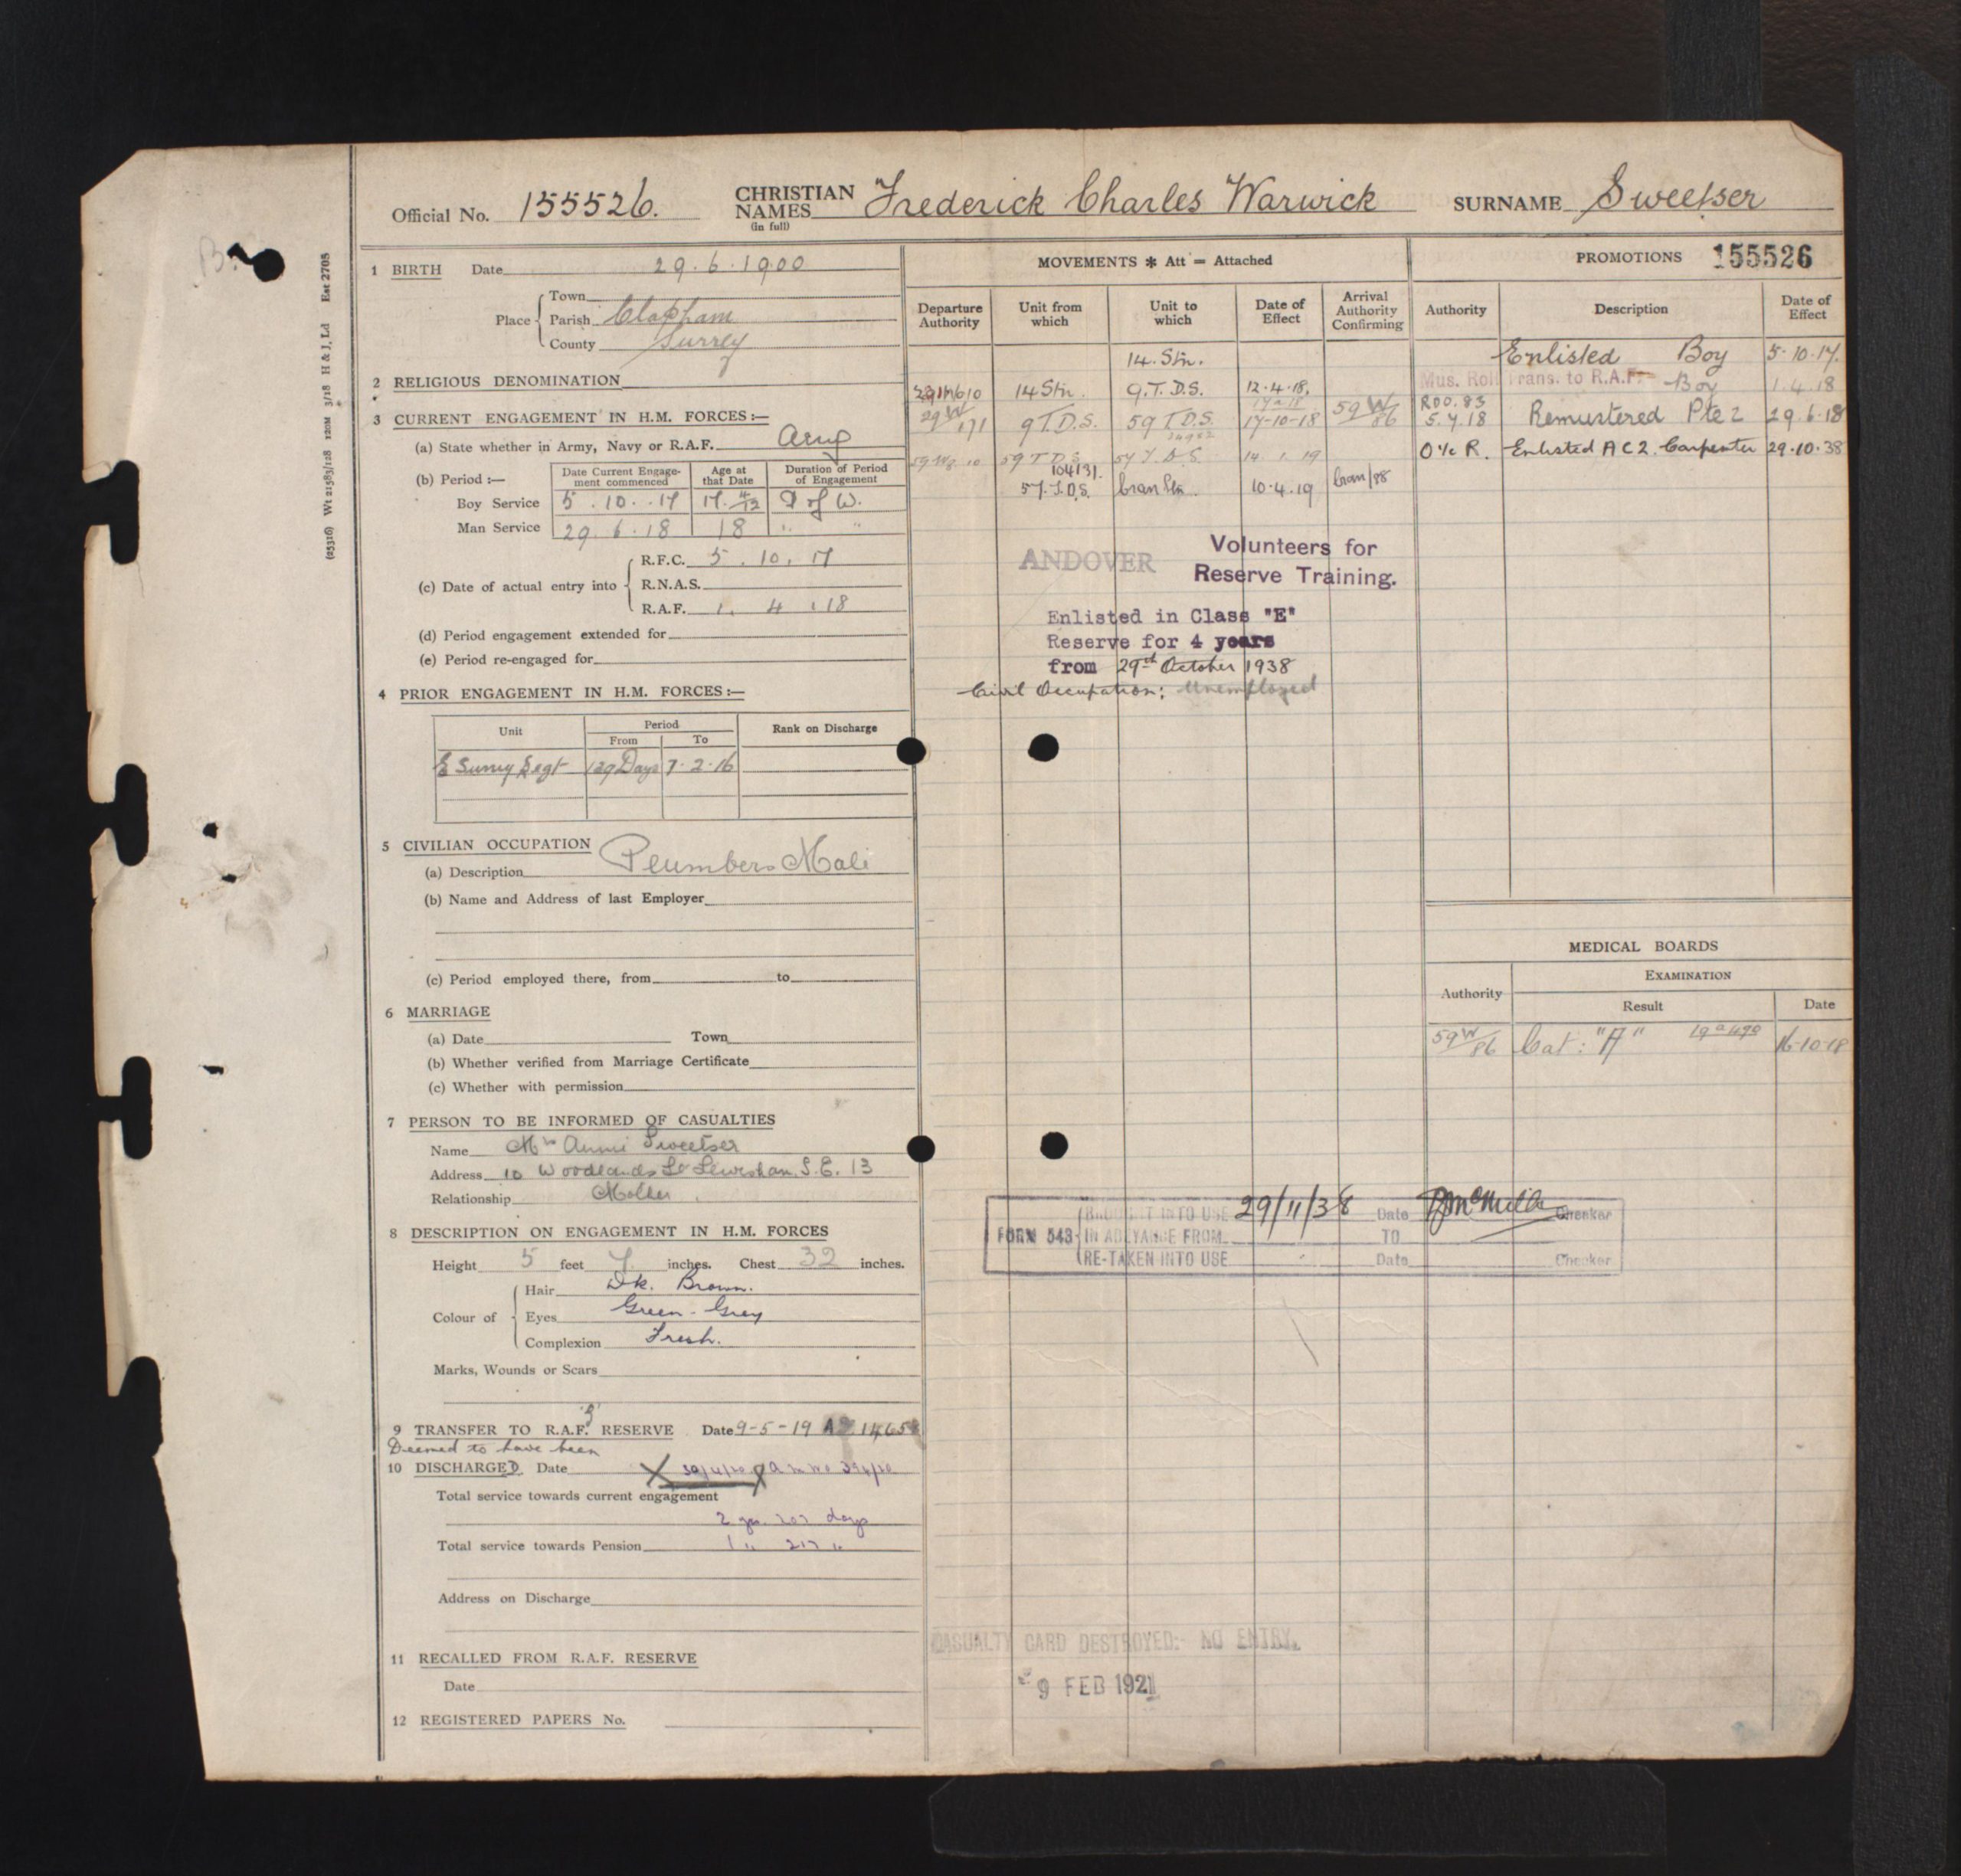 Official No. 155526. CHRISTIAN NAMES (in full) Frederick Charles Warwick SURNAME Sweetser
(25326) Wt 21583/128 120M 3/18 H & J, Ld Est 2705
1 BIRTH Date 29.6.1900
Place Town
Parish Clapham
County Surrey
2 RELIGIOUS DENOMINATION
3 CURRENT ENGAGEMENT IN H.M. FORCES :—
(a) State whether in Army, Navy or R.A.F. Army
(b) Period :— Date Current Engage-ment commenced Age at that Date Duration of Period of Engagement
Boy Service 5.10.17 17 4/12 D of W.
Man Service 29.6.18 18 " "
(c) Date of actual entry into R.F.C. 5.10.17
R.N.A.S.
R.A.F. 1.4.18
(d) Period engagement extended for
(e) Period re-engaged for
4 PRIOR ENGAGEMENT IN H.M. FORCES :—
Unit Period Rank on Discharge
From To
E Surrey Regt 129 Days 7.2.16
5 CIVILIAN OCCUPATION
(a) Description Plumbers Mate
(b) Name and Address of last Employer
(c) Period employed there, from to
6 MARRIAGE
(a) Date Town
(b) Whether verified from Marriage Certificate
(c) Whether with permission
7 PERSON TO BE INFORMED OF CASUALTIES
Name Mrs Annie Sweetser
Address 10 Woodlands St Lewisham S.E. 13
Relationship Mother
8 DESCRIPTION ON ENGAGEMENT IN H.M. FORCES
Height 5 feet 7 inches. Chest 32 inches.
Colour of Hair Dk. Brown.
Eyes Green - Grey
Complexion Fresh.
Marks, Wounds or Scars
9 TRANSFER TO R.A.F. RESERVE Date 9-5-19
Deemed to have been
10 DISCHARGED Date 30/4/20
Total service towards current engagement
2 yrs. 207 days
Total service towards Pension 1 " 217 "
Address on Discharge
11 RECALLED FROM R.A.F. RESERVE
Date
12 REGISTERED PAPERS No.
MOVEMENTS * Att = Attached
Departure Authority Unit from which Unit to which Date of Effect Arrival Authority Confirming
14. Stn.
14 Stn. 9.T.D.S. 12.4.18.
29 W/171 9 T.D.S. 59 T.D.S. 17-10-18 59 W/86
59 T.D.S. 57 T.D.S. 14.1.19
104131.
57.T.D.S. Cran Stn. 10.4.19 Cran/88
ANDOVER
Volunteers for
Reserve Training.
Enlisted in Class "E"
Reserve for 4 years
from 29th October 1938
Civil Occupation: Unemployed
PROMOTIONS 155526
Authority Description Date of Effect
Enlisted Boy 5.10.17.
Mus. Roll Trans. to R.A.F. Boy 1.4.18
R00.83
5.7.18 Remustered Pte 2 29.6.18
O i/c R. Enlisted AC2. Carpenter 29.10.38
MEDICAL BOARDS
Authority EXAMINATION
Result Date
59 W/86 Cat: "A" 16-10-18
FORM 543 BROUGHT INTO USE 29/11/38 Date Checker
IN ADVANCE FROM TO
RE-TAKEN INTO USE Date Checker
CASUALTY CARD DESTROYED:- NO ENTRY.
9 FEB 1921